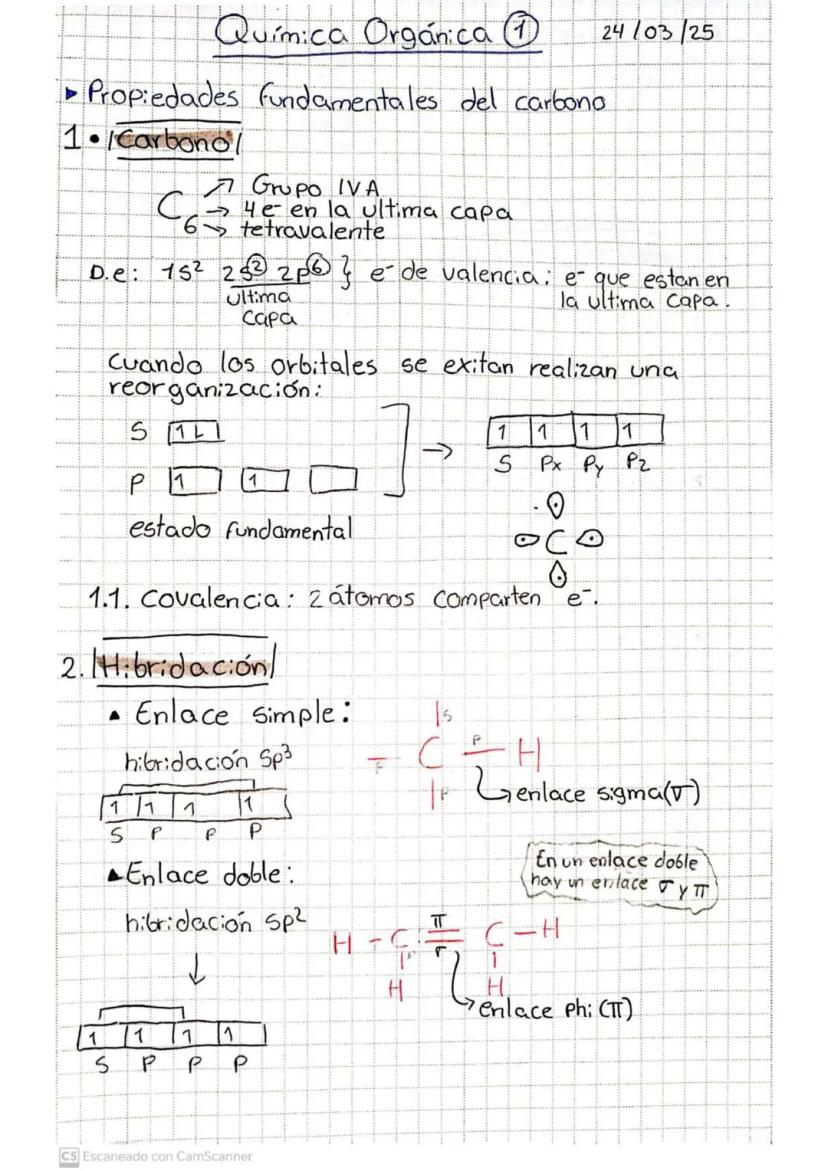 Química Orgánica ① 24/03/25
▸ Propiedades fundamentales del carbono
1 • Carbono
C6 ↗ Grupo IVA
→ 4 e- en la ultima capa
→ tetravalente
D.e: 1s² 2s② 2p⑥ } e- de valencia: e- que estan en
ultima la ultima capa.
capa
Cuando los orbitales se exitan realizan una
reorganización:
S 1 L → 1 1 1 1
S Px Py Pz
P 1 1
estado fundamental
C
1.1. Covalencia: 2 átomos comparten e-.
2. Hibridación
▲ Enlace simple:
hibridación Sp³
1 1 1 1
S P P P
S
P C P H
P
enlace sigma(σ)
▲ Enlace doble:
En un enlace doble
hay un enlace σ y π
hibridación Sp²
H - C = C - H
π
σ
H H
enlace phi (π)
1 1 1 1
S P P P
CS Escaneado con CamScanner